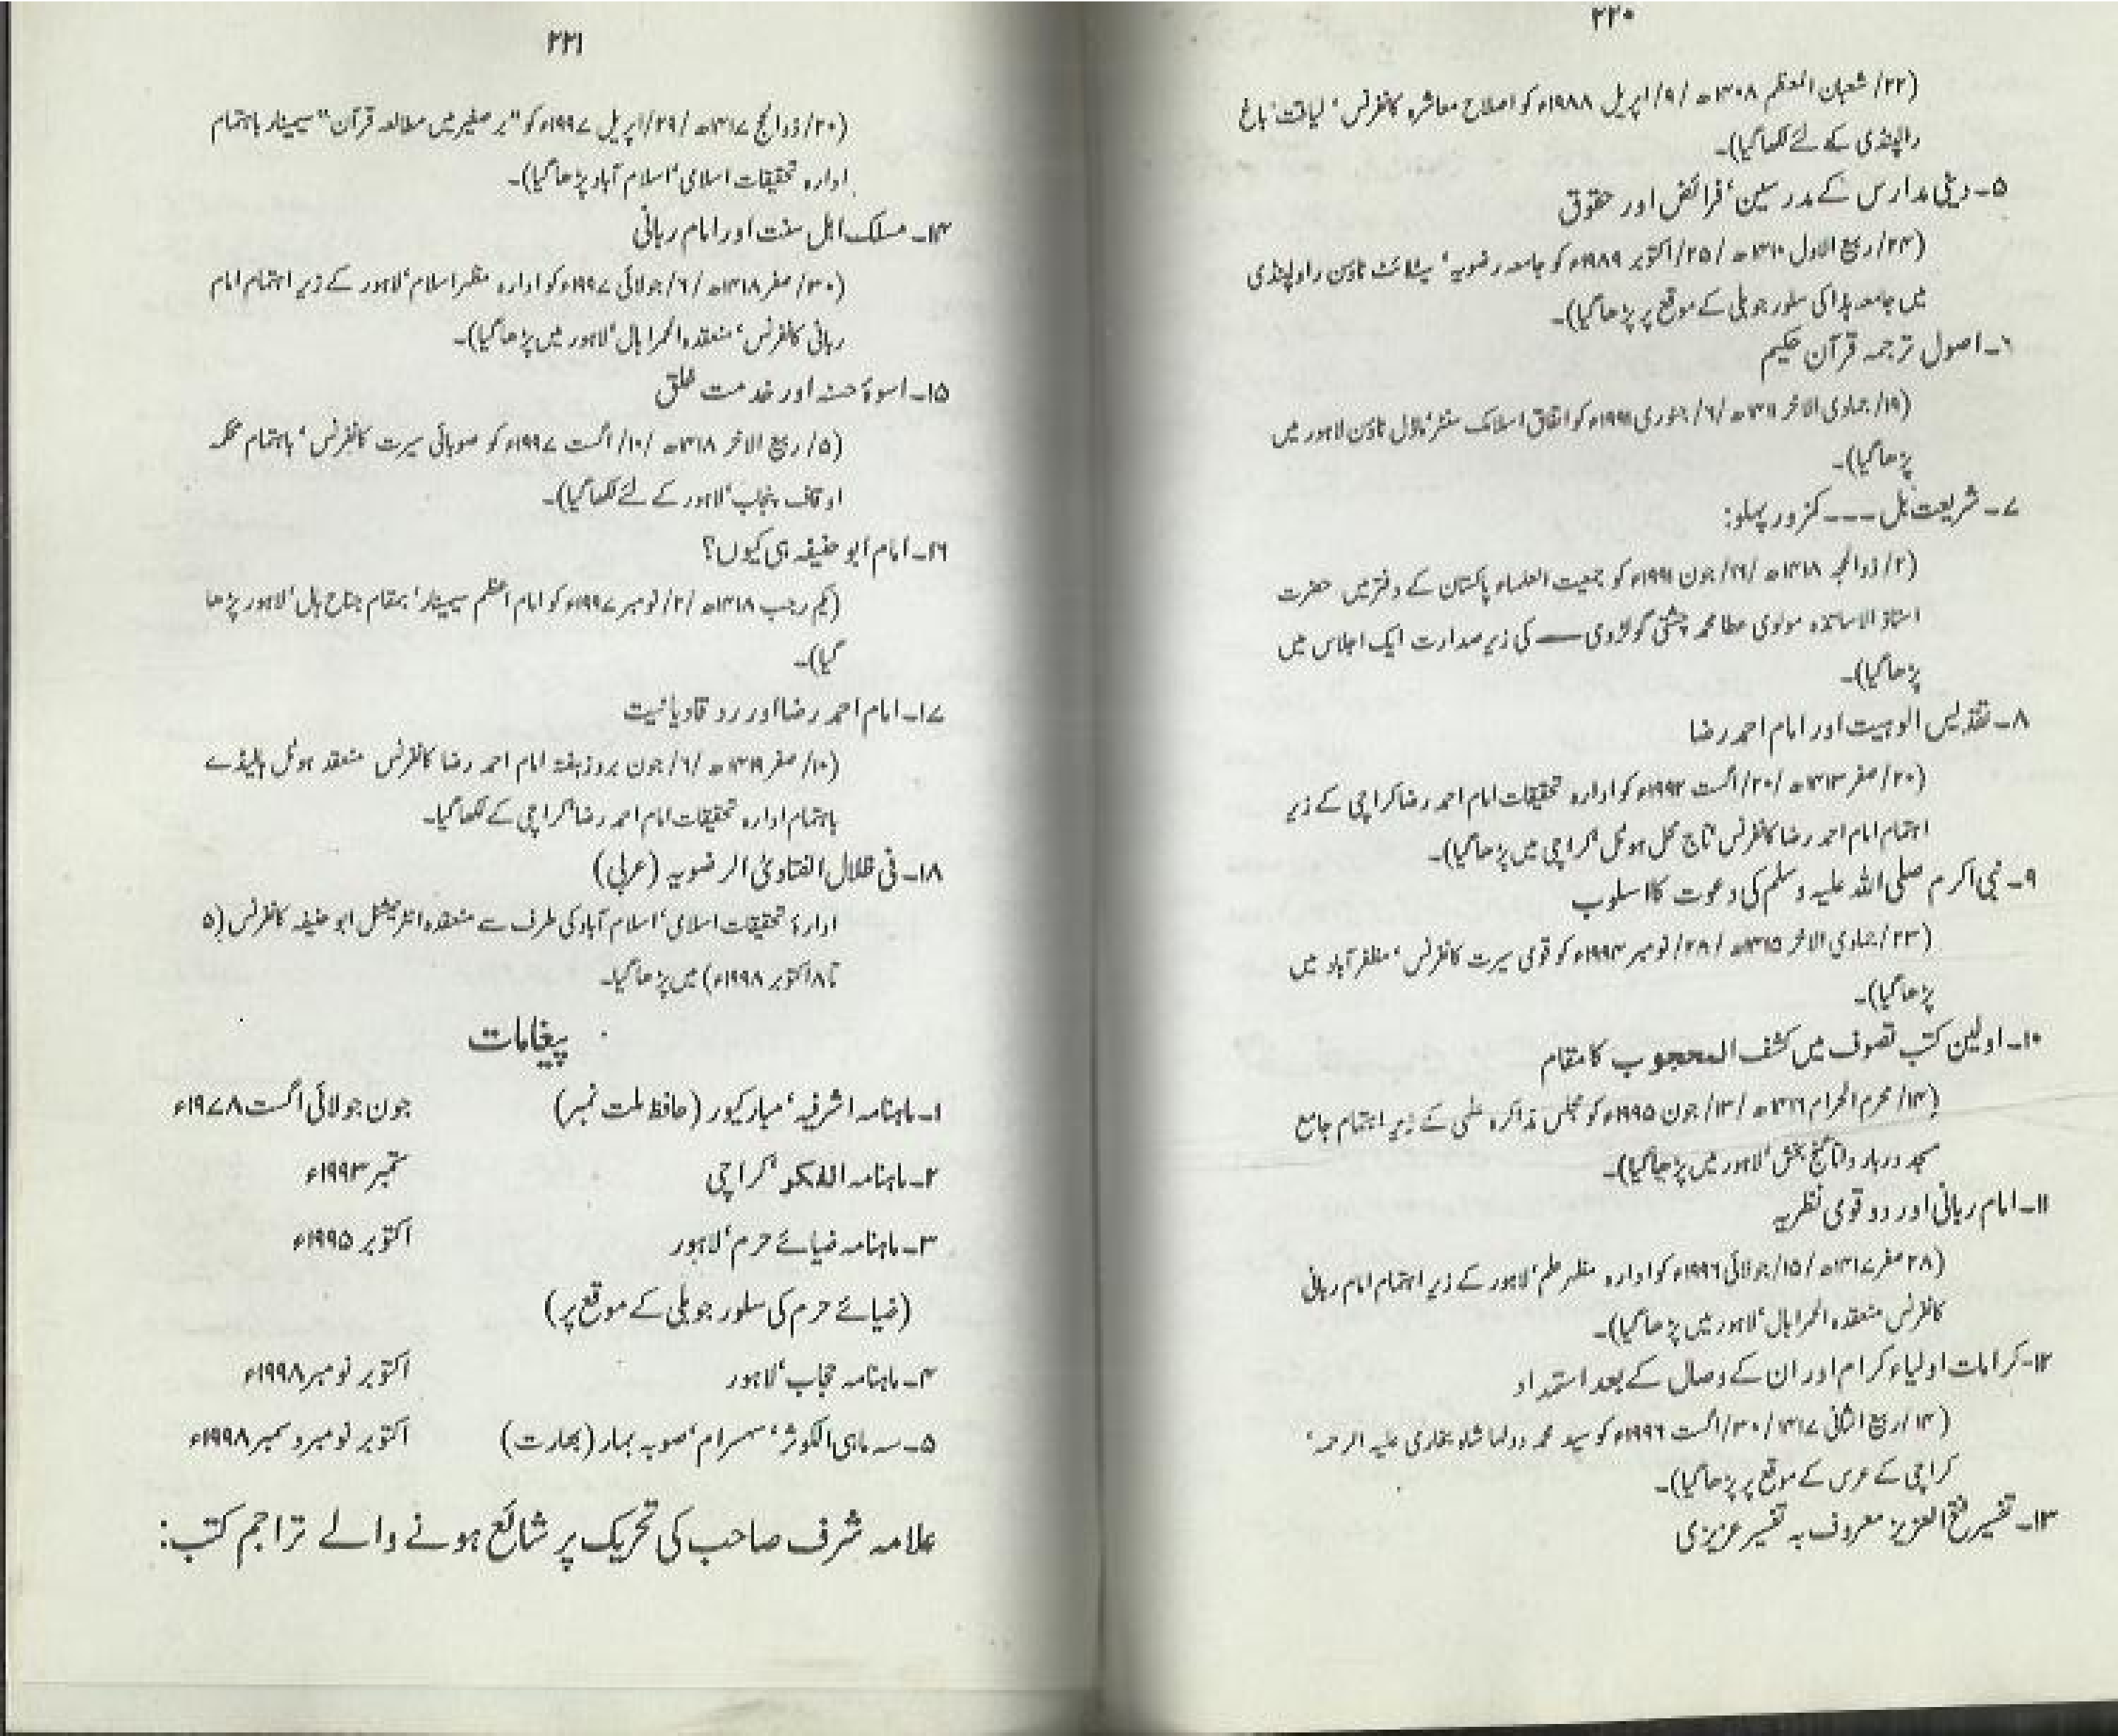 ۲۲۰
(۲۲/ شعبان المعظم ۱۴۰۸ھ /۹/ اپریل ۱۹۸۸ء کو اصلاح معاشرہ کانفرنس' لیاقت باغ
راولپنڈی کے لئے لکھا گیا)۔
۵۔ دینی مدارس کے مدرسین' فرائض اور حقوق
(۲۴/ ربیع الاول ۱۴۱۰ھ /۲۵/ اکتوبر ۱۹۸۹ء کو جامعہ رضویہ' سیٹلائٹ ٹاؤن راولپنڈی
میں جامعہ ہذا کی سلور جوبلی کے موقع پر پڑھا گیا)۔
۶۔ اصول ترجمہ قرآن حکیم
(۱۹/ جمادی الاخر ۱۴۱۱ھ /۶/ جنوری ۱۹۹۱ء کو اتفاق اسلامک سنٹر' ماڈل ٹاؤن لاہور میں
پڑھا گیا)۔
۷۔ شریعت بل ۔۔۔ کمزور پہلو:
(۲/ ذوالحجہ ۱۴۱۸ھ /۱۶/ جون ۱۹۹۱ء کو جمعیت العلماء پاکستان کے دفتر میں حضرت
استاذ الاساتذہ مولوی عطا محمد چشتی گولڑوی — کی زیر صدارت ایک اجلاس میں
پڑھا گیا)۔
۸۔ تقدیس الوہیت اور امام احمد رضا
(۲۰/ صفر ۱۴۱۳ھ /۲۰/ اگست ۱۹۹۲ء کو ادارہ تحقیقات امام احمد رضا کراچی کے زیر
اہتمام امام احمد رضا کانفرنس' تاج محل ہوٹل' کراچی میں پڑھا گیا)۔
۹۔ نبی اکرم صلی اللہ علیہ وسلم کی دعوت کا اسلوب
(۲۳/ جمادی الاخر ۱۴۱۵ھ /۲۸/ نومبر ۱۹۹۴ء کو قومی سیرت کانفرنس' مظفر آباد میں
پڑھا گیا)۔
۱۰۔ اولین کتب تصوف میں کشف المحجوب کا مقام
(۱۴/ محرم الحرام ۱۴۱۶ھ /۱۳/ جون ۱۹۹۵ء کو مجلس مذاکرہ علمی کے زیر اہتمام جامع
مسجد دربار داتا گنج بخش' لاہور میں پڑھا گیا)۔
۱۱۔ امام ربانی اور دو قومی نظریہ
(۲۸ صفر ۱۴۱۷ھ /۱۵/ جولائی ۱۹۹۶ء کو ادارہ مظہر علم' لاہور کے زیر اہتمام امام ربانی
کانفرنس منعقدہ الحمرا ہال' لاہور میں پڑھا گیا)۔
۱۲۔ کرامات اولیاء کرام اور ان کے وصال کے بعد استمداد
(۱۴/ ربیع الثانی ۱۴۱۷ /۳۰/ اگست ۱۹۹۶ء کو سید محمد دولہا شاہ بخاری علیہ الرحمہ'
کراچی کے عرس کے موقع پر پڑھا گیا)۔
۱۳۔ تفسیر فتح العزیز معروف بہ تفسیر عزیزی
۲۲۱
(۲۰/ ذوالحج ۱۴۱۷ھ /۲۹/ اپریل ۱۹۹۷ء کو "بر صغیر میں مطالعہ قرآن" سیمینار باہتمام
ادارہ تحقیقات اسلامی' اسلام آباد پڑھا گیا)۔
۱۴۔ مسلک اہل سنت اور امام ربانی
(۳۰/ صفر ۱۴۱۸ھ /۶/ جولائی ۱۹۹۷ء کو ادارہ مظہر اسلام' لاہور کے زیر اہتمام امام
ربانی کانفرنس' منعقدہ الحمرا ہال' لاہور میں پڑھا گیا)۔
۱۵۔ اسوۂ حسنہ اور خدمت خلق
(۵/ ربیع الاخر ۱۴۱۸ھ /۱۰/ اگست ۱۹۹۷ء کو صوبائی سیرت کانفرنس' باہتمام محکمہ
اوقاف پنجاب' لاہور کے لئے لکھا گیا)۔
۱۶۔ امام ابو حنیفہ ہی کیوں؟
(یکم رجب ۱۴۱۸ھ /۲/ نومبر ۱۹۹۷ء کو امام اعظم سیمینار' بمقام جناح ہال' لاہور پڑھا
گیا)۔
۱۷۔ امام احمد رضا اور رد قادیانیت
(۱۰/ صفر ۱۴۱۹ھ /۶/ جون بروز ہفتہ امام احمد رضا کانفرنس منعقد ہوٹل ہالیڈے
باہتمام ادارہ تحقیقات امام احمد رضا' کراچی کے لکھا گیا۔
۱۸۔ فی ظلال الفتاویٰ الرضویہ (عربی)
ادارۂ تحقیقات اسلامی' اسلام آباد کی طرف سے منعقدہ انٹرنیشنل ابو حنیفہ کانفرنس (۵
تا ۸ اکتوبر ۱۹۹۸ء) میں پڑھا گیا۔
پیغامات
۱۔ ماہنامہ اشرفیہ' مبارکپور (حافظ ملت نمبر) جون جولائی اگست ۱۹۷۸ء
۲۔ ماہنامہ الفکر' کراچی ستمبر ۱۹۹۳ء
۳۔ ماہنامہ ضیائے حرم' لاہور اکتوبر ۱۹۹۵ء
(ضیائے حرم کی سلور جوبلی کے موقع پر)
۴۔ ماہنامہ حجاب' لاہور اکتوبر نومبر ۱۹۹۸ء
۵۔ سہ ماہی الکوثر' سہسرام' صوبہ بہار (بھارت) اکتوبر نومبر دسمبر ۱۹۹۸ء
علامہ شرف صاحب کی تحریک پر شائع ہونے والے تراجم کتب: